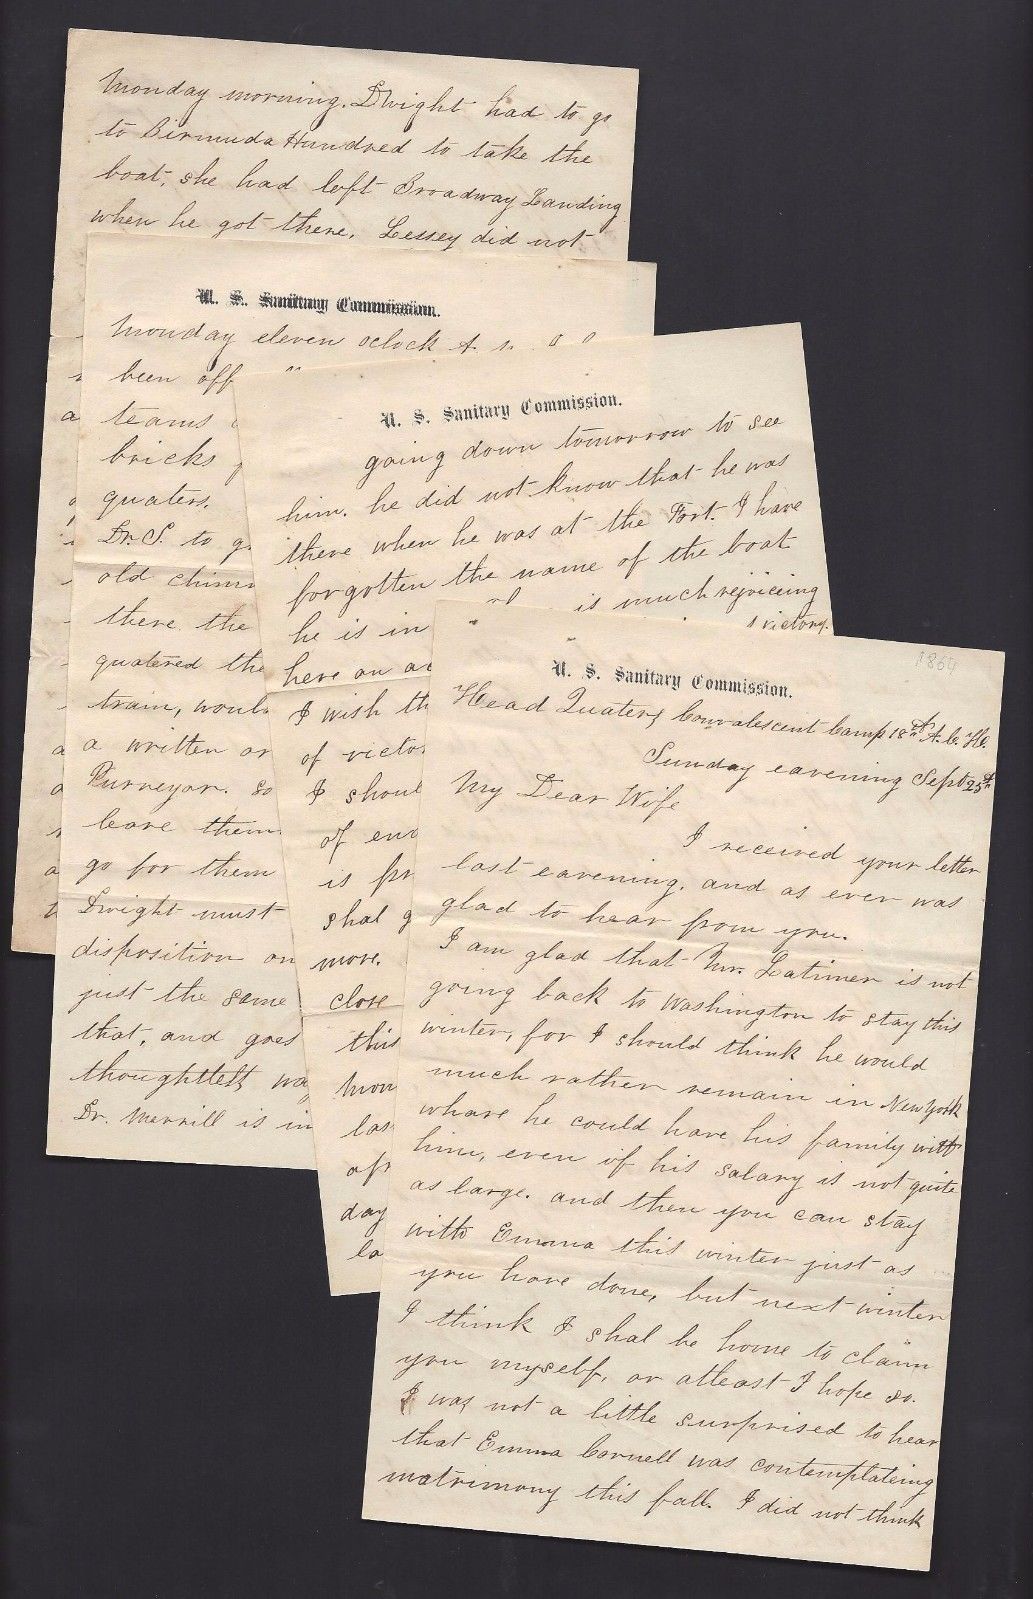 Monday morning. Dwight had to go
to Birmuda Hundred to take the
boat, she had left Broadway Landing
when he got there. Lessey did not
U. S. Sanitary Commission.
Monday eleven oclock
been off
teams
bricks
quaters.
Dr. S. to
old
there the
quatered the
train,
a written
Purveyor. so
leave them
go for them
Dwight must
disposition
just the same
that, and goes
thoughtless
Dr. Merrill is in
U. S. Sanitary Commission.
going down tomorrow to see
him. he did not know that he was
there when he was at the Fort. I have
forgotten the name of the boat
he is in is much rejoicing
here on victory.
I wish
of
I
of
is
shal
more.
close
this
day
U. S. Sanitary Commission.
1864
Head Quaters Convalescent Camp 18th A. C. Ho.
Sunday eavening Sept 25th
My Dear Wife
I received your letter
last eavening. and as ever was
glad to hear from you.
I am glad that Mr. Latimer is not
going back to Washington to stay this
winter, for I should think he would
much rather remain in New York
whare he could have his family with
him, even if his salary is not quite
as large. and then you can stay
with Emma this winter just as
you have done, but next winter
I think I shal be home to claim
you myself, or atleast I hope so.
I was not a little surprised to hear
that Emma Cornell was contemplateing
matrimony this fall. I did not think